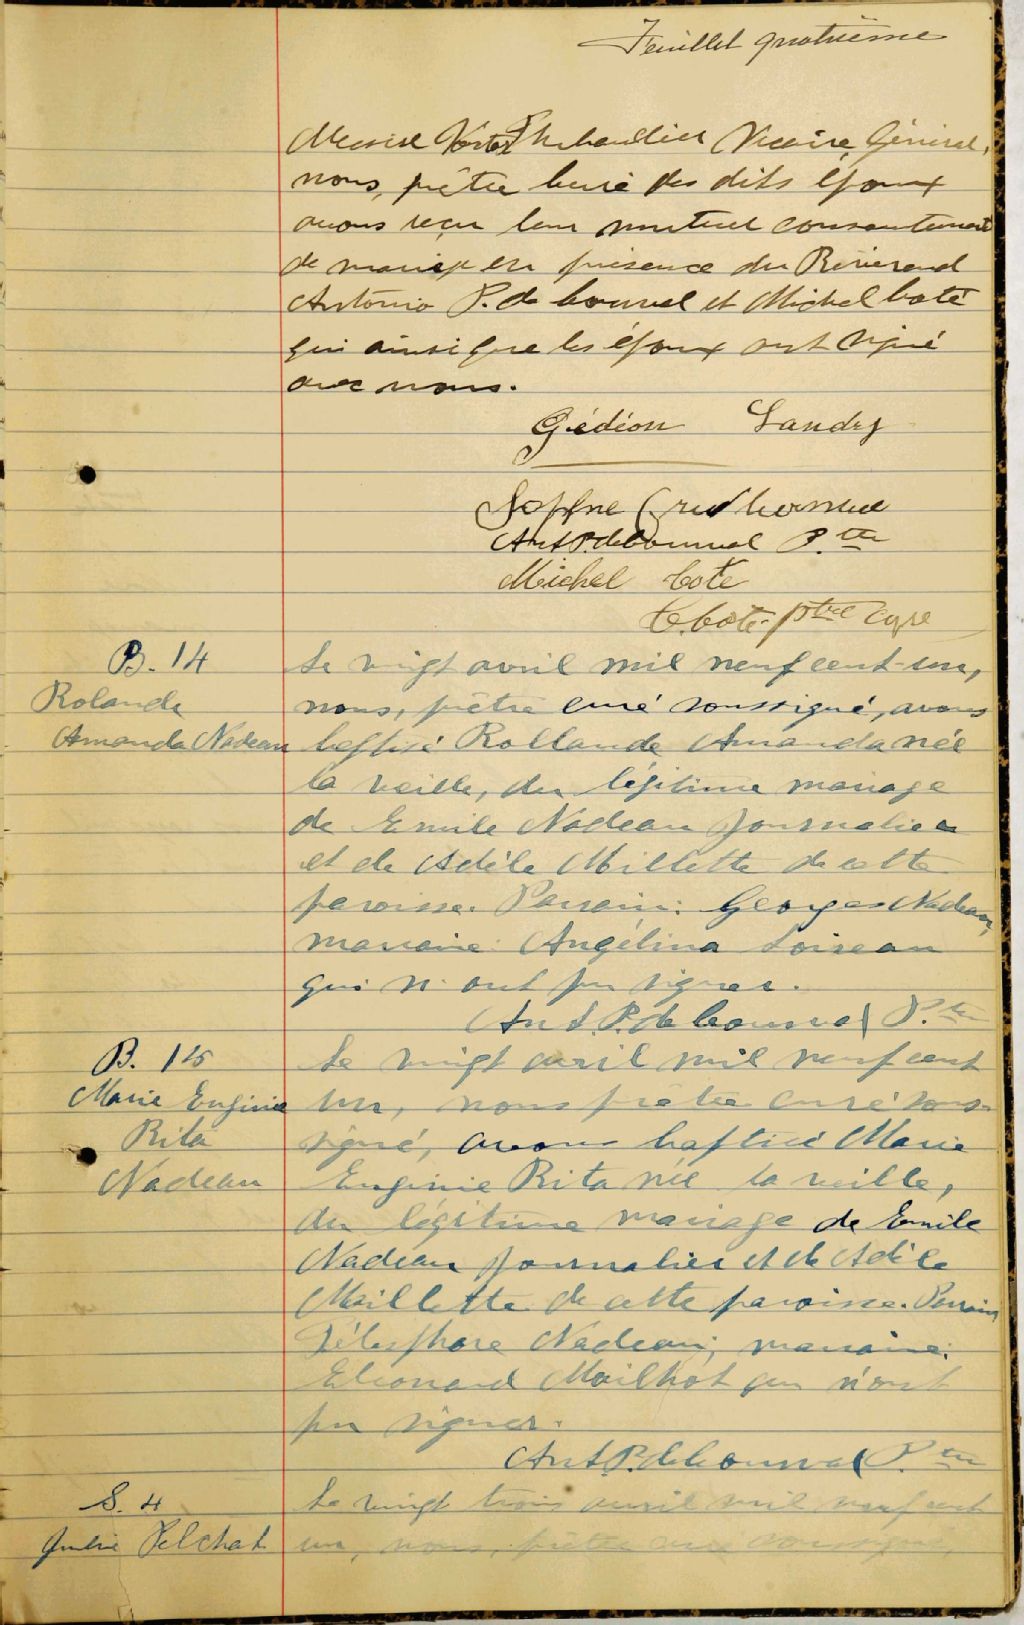 Feuillet quatrième
Vicaire Général,
nous, prêtre curé des dits époux
avons reçu leur mutuel consentement
de mariage en présence du Révérend
Antonio P. de Courval et Michel Coté
qui ainsi que les époux ont signé
avec nous.
Gédéon Landry
Ant P. de Courval P.tre
Michel Cote
C. Coté ptre curé
B. 14
Rolande
Amanda Nadeau
Le vingt avril mil neuf cent-un,
nous, prêtre curé soussigné, avons
baptisé Rollande Amanda née
la veille, du légitime mariage
de Emile Nadeau journalier
et de Adèle Millette de cette
paroisse. Parrain: Georges Nadeau,
marraine: Angélina Loiseau
qui n'ont pu signer.
Ant. P. de Courval P.tre
B. 15
Marie Eugénie
Rita
Nadeau
Le vingt avril mil neuf cent
un, nous prêtre curé sous-
signé, avons baptisé Marie
Eugénie Rita née la veille,
du légitime mariage de Emile
Nadeau journalier et de Adèle
Maillette de cette paroisse. Parrain
Télesphore Nadeau; marraine:
Eléonard Mailhot qui n'ont
pu signer.
Ant P. de Courval P.tre
S. 4
Julie Pelchat
Le vingt trois avril mil neuf cent
un, nous, prêtre curé soussigné,